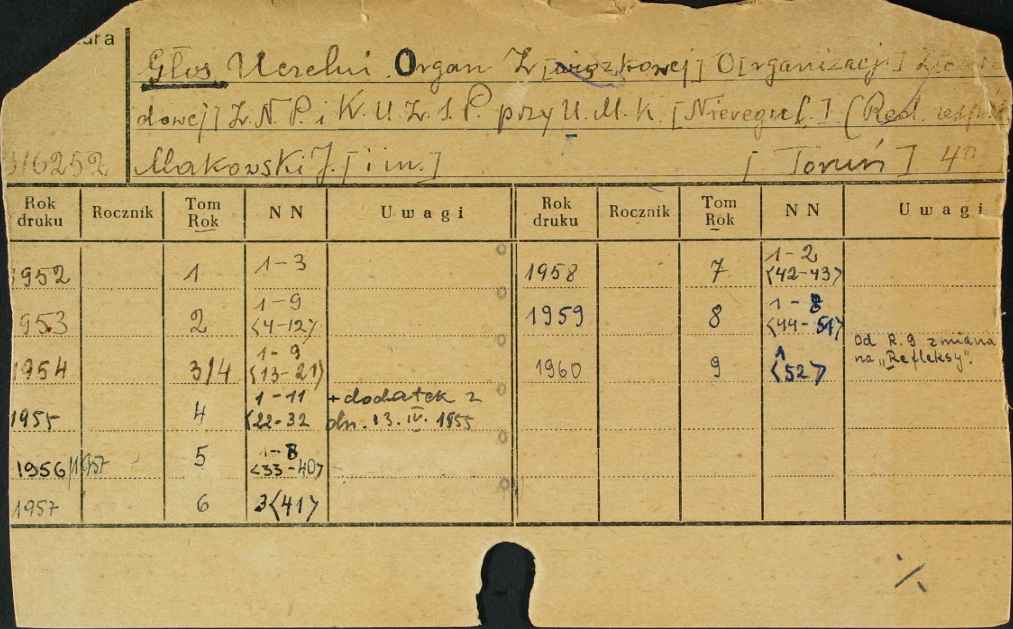 Głos Uczelni. Organ Z[wiązkowej] O[rganizacji]
dowej] Z.N.P. i K.U.Z.S.P. przy U.M.K. [Nieregul.] (Red.
316252 Makowski J. [i in.] [Toruń] 4°
Rok druku Rocznik Tom Rok NN Uwagi Rok druku Rocznik Tom Rok NN Uwagi
1952 1 1-3
1958 7 1-2 <42-43>
1953 2 1-9 <4-12>
1959 8 1-8 <44-51>
1954 3/4 1-9 <13-21>
1960 9 1 <52> od R.9 zmiana
na „Refleksy".
1955 4 1-11 <22-32 + dodatek z
dn. 13.IV.1955
1956/1957 5 1-8 <33-40>
1957 6 3<41>